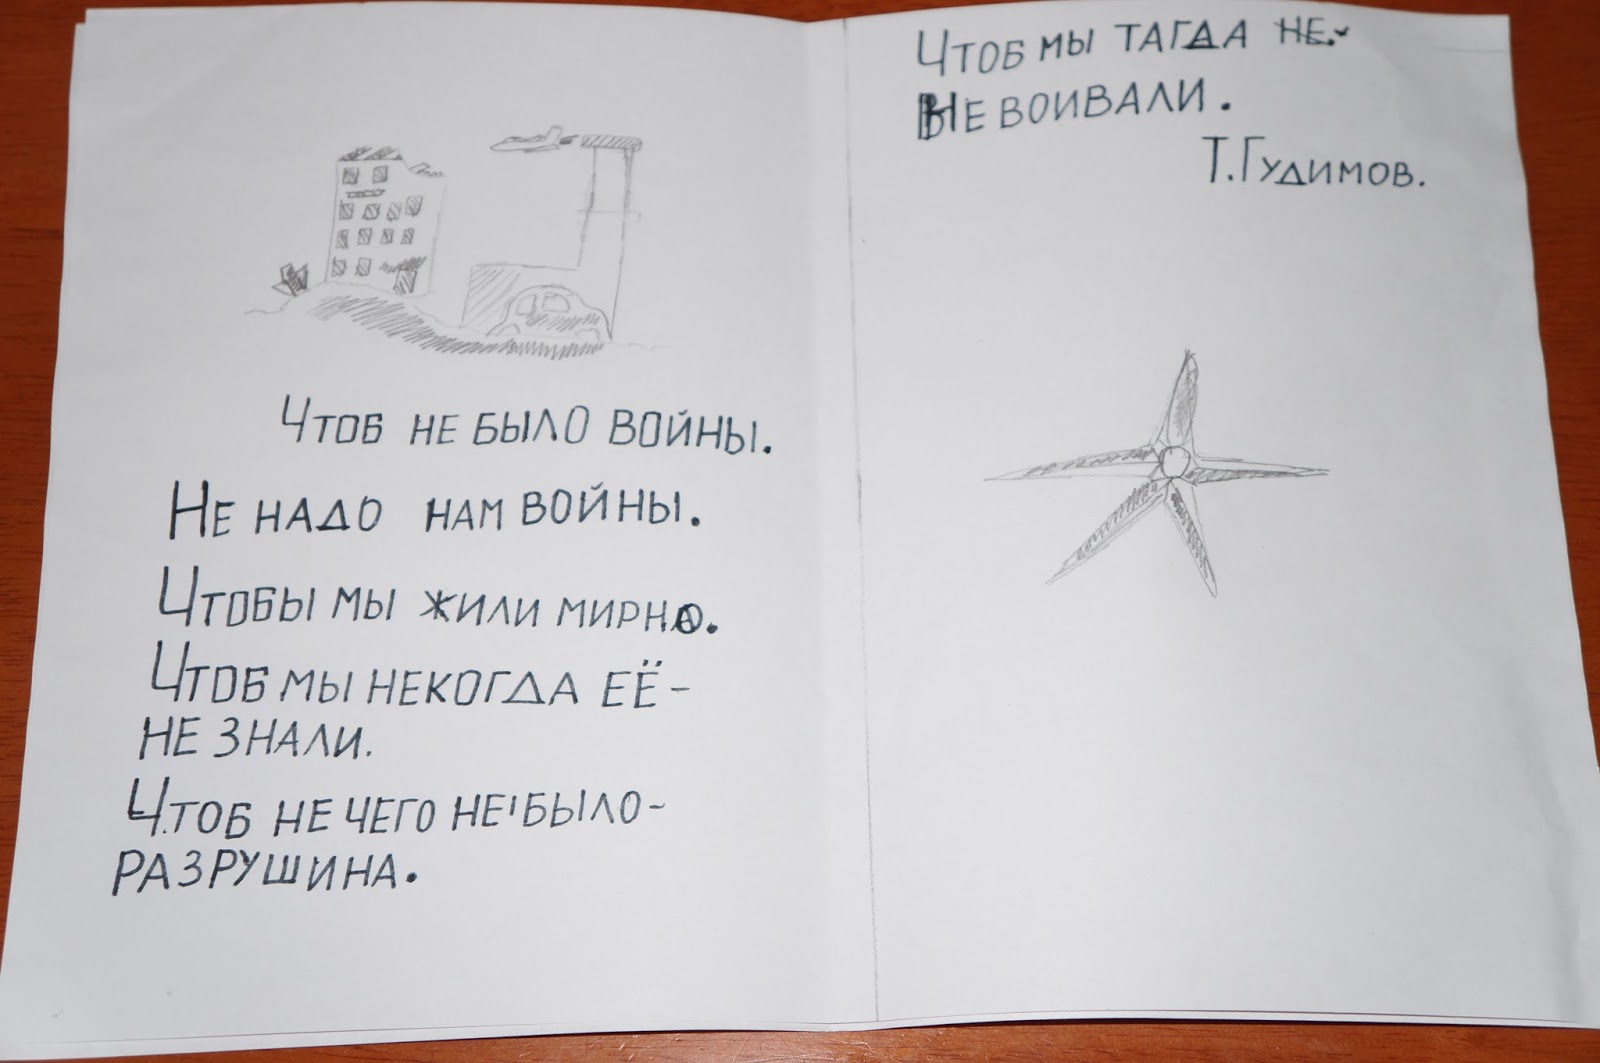 Чтоб не было войны.
Не надо нам войны.
Чтобы мы жили мирно.
Чтоб мы некогда её-
не знали.
Чтоб не чего не было-
разрушина.
Чтоб мы тагда не
не воивали.
Т. Гудимов.